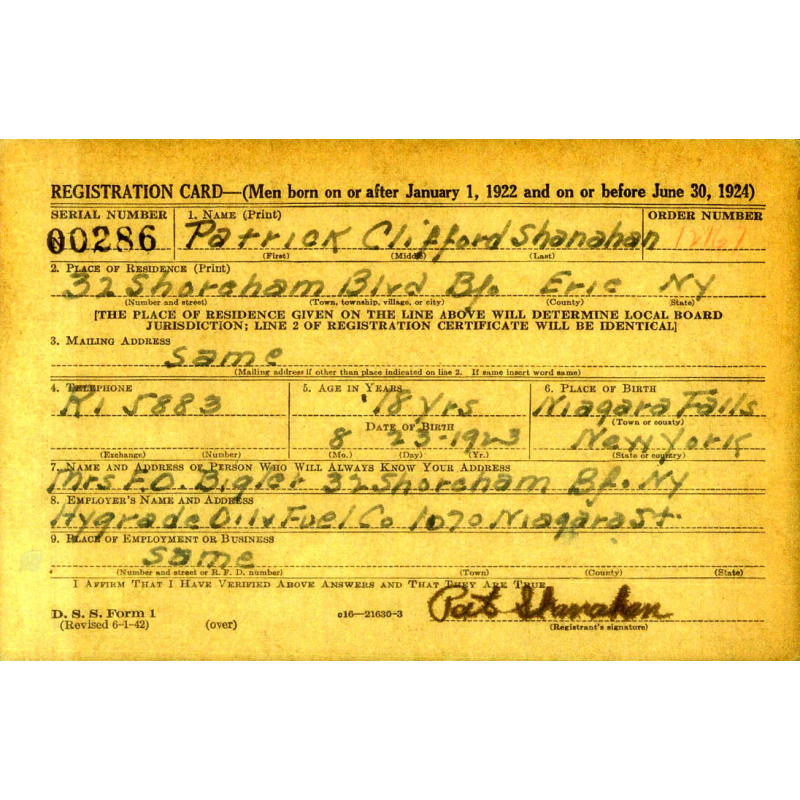 REGISTRATION CARD—(Men born on or after January 1, 1922 and on or before June 30, 1924)
SERIAL NUMBER 1. NAME (Print) ORDER NUMBER
00286 Patrick Clifford Shanahan
(First) (Middle) (Last)
2. PLACE OF RESIDENCE (Print)
32 Shoreham Blvd Bf. Erie NY
(Number and street) (Town, township, village, or city) (County) (State)
[THE PLACE OF RESIDENCE GIVEN ON THE LINE ABOVE WILL DETERMINE LOCAL BOARD
JURISDICTION; LINE 2 OF REGISTRATION CERTIFICATE WILL BE IDENTICAL]
3. MAILING ADDRESS
same
(Mailing address if other than place indicated on line 2. If same insert word same)
4. TELEPHONE 5. AGE IN YEARS 6. PLACE OF BIRTH
Ri 5883 18 Yrs Niagara Falls
DATE OF BIRTH (Town or county)
8 23-1923 New York
(Exchange) (Number) (Mo.) (Day) (Yr.) (State or country)
7. NAME AND ADDRESS OF PERSON WHO WILL ALWAYS KNOW YOUR ADDRESS
Mrs F.O. Bigler 32 Shoreham Bf. NY
8. EMPLOYER'S NAME AND ADDRESS
Hygrade Oil Fuel Co 1070 Niagara St.
9. PLACE OF EMPLOYMENT OR BUSINESS
same
(Number and street or R. F. D. number) (Town) (County) (State)
I AFFIRM THAT I HAVE VERIFIED ABOVE ANSWERS AND THAT THEY ARE TRUE.
Pat Shanahan
D. S. S. Form 1 c16—21630-3
(Revised 6-1-42) (over) (Registrant's signature)